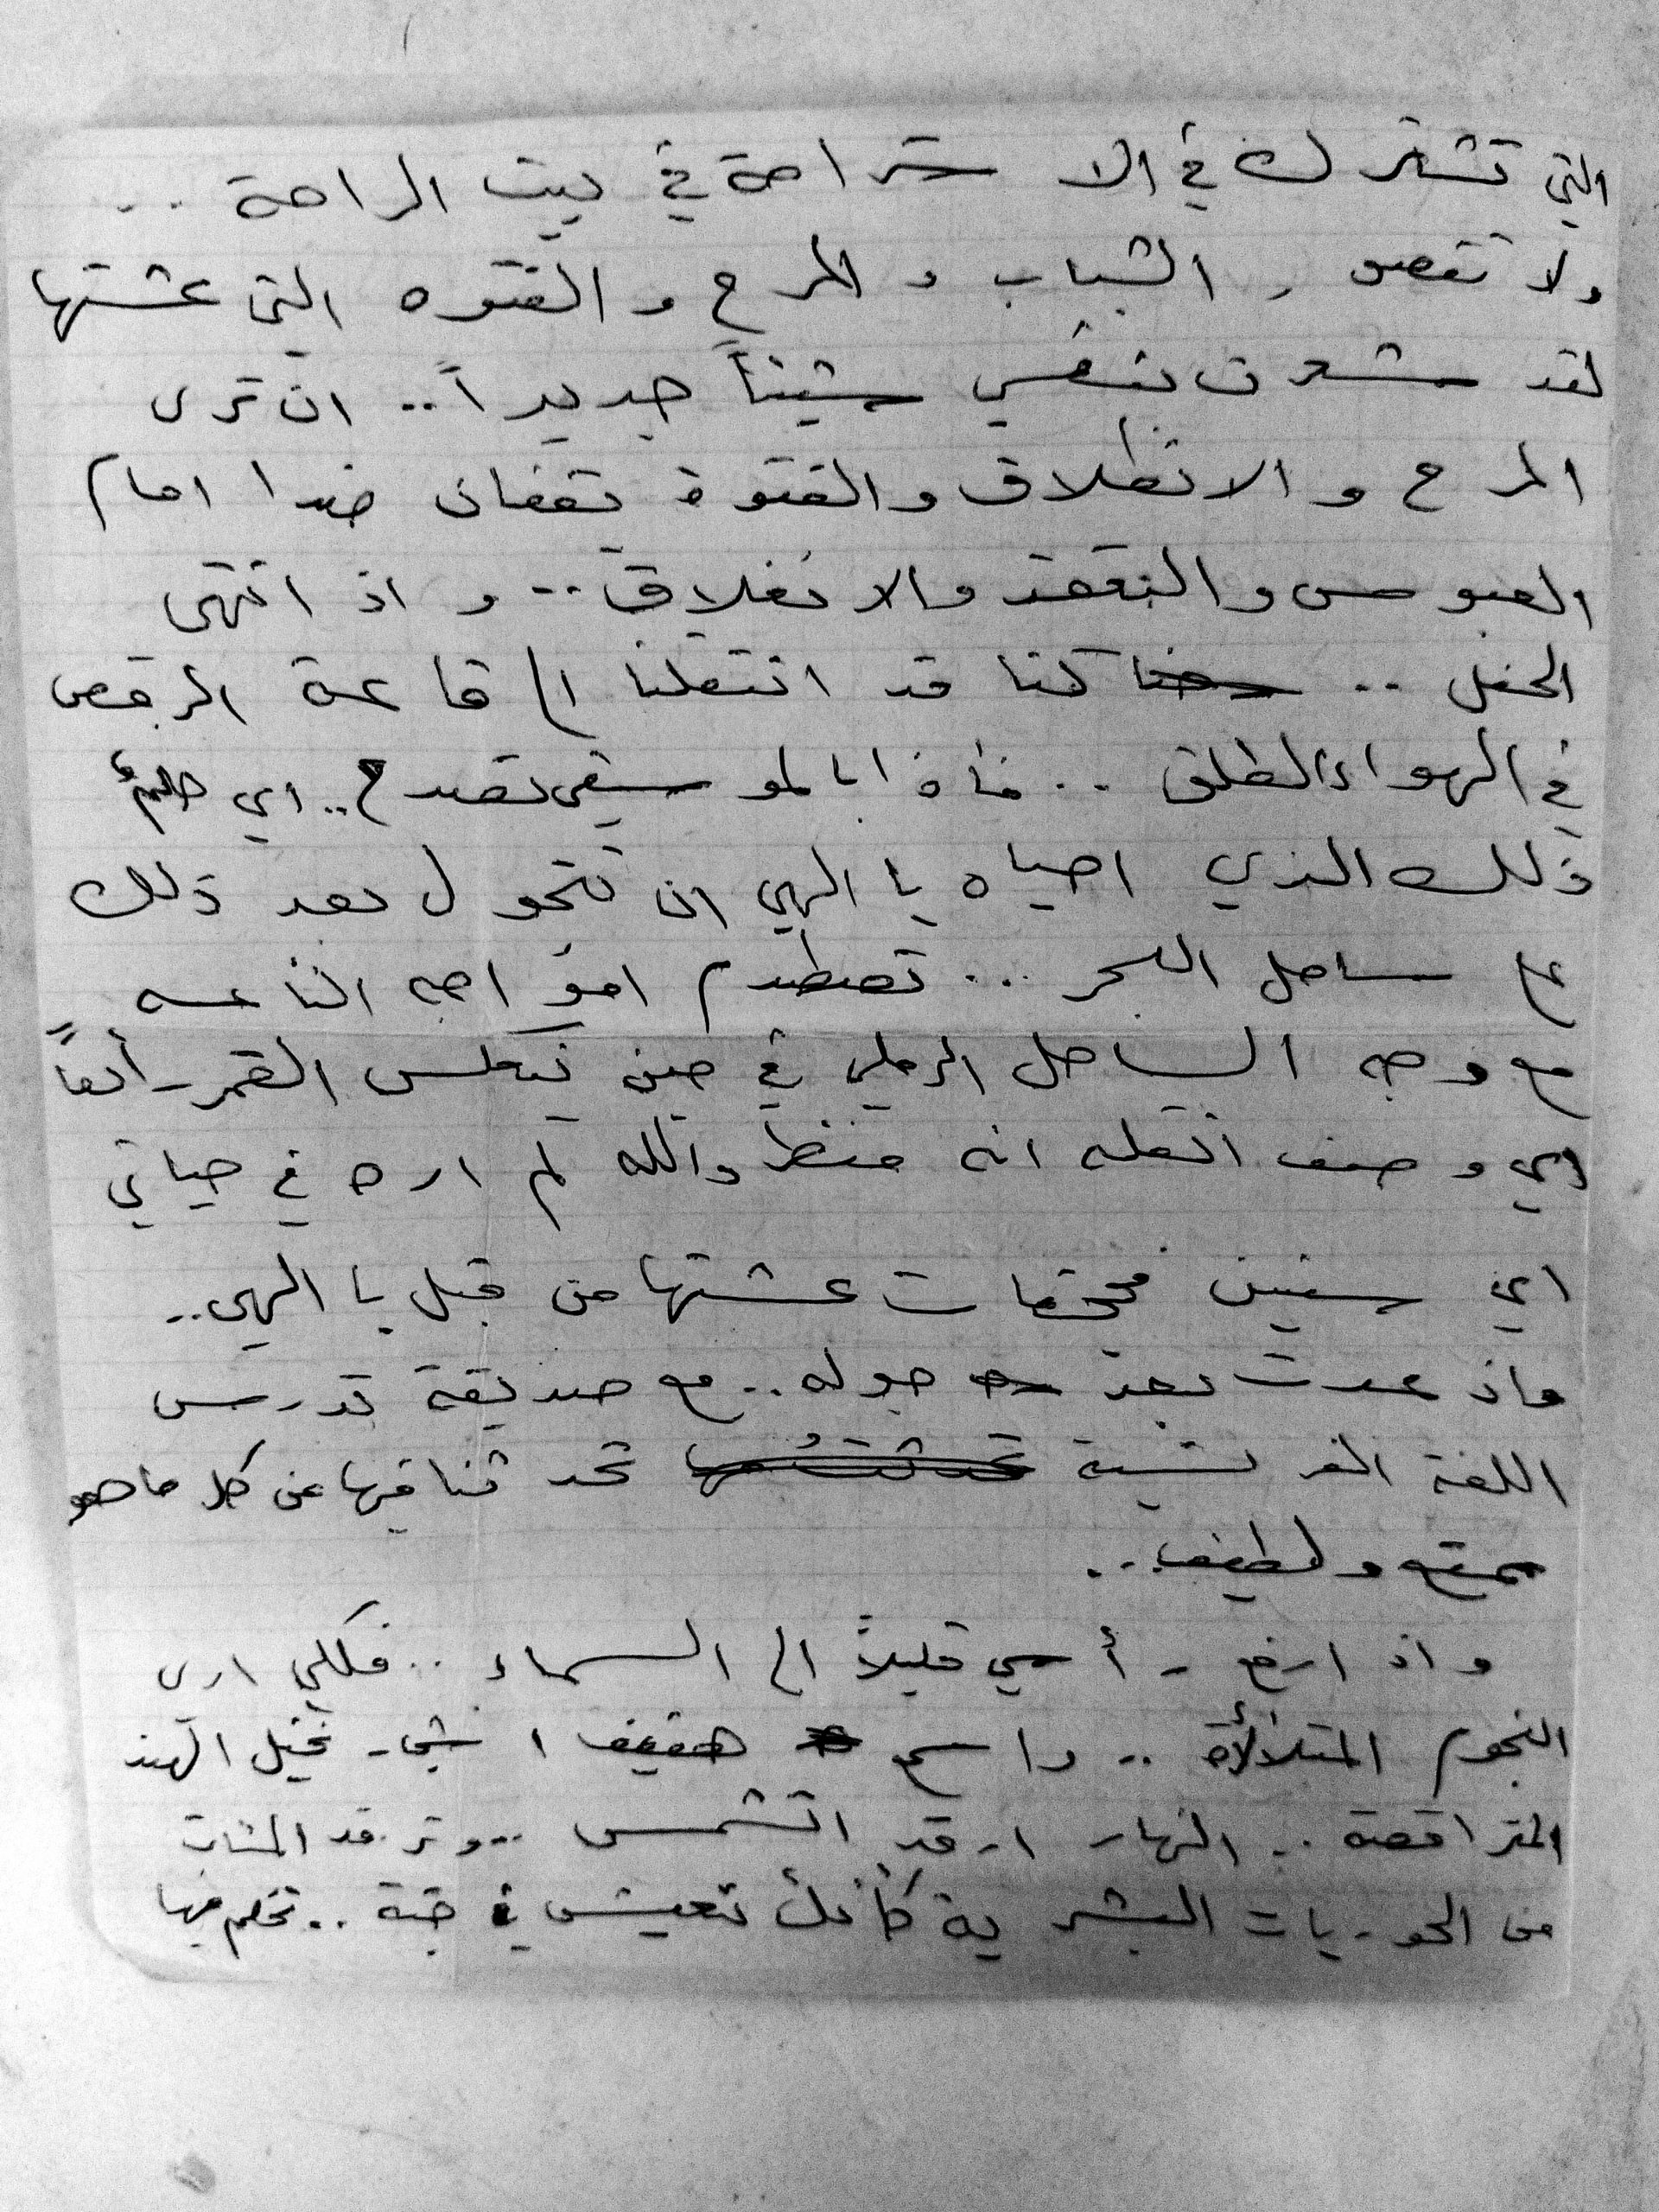 التي تشترك في الاستراحة في بيت الراحة ..
ولا تتصور الشباب والمرح والفتوه التي عشتها
لقد شعرت بنفسي شيئاً جديداً .. ان ترى
المرح والانطلاق والفتوة يقفان ضدا امام
العبوس والتعقد والانغلاق .. و اذ انتهى
الحفل .. كنا قد انتقلنا الى قاعة الرقص
في الهواء الطلق .. فاذا بالموسيقى تصدح .. اي حلم
ذلك الذي احياه يا الهي ان تتحول بعد ذلك
على ساحل البحر ... تصطدم امواجه الناعسه
مع وجه الساحل الرملي في حين ينعكس القمر رائعاً
اي وصف انقله انه منظر والله لم اره في حياتي
اي سنين عشتها من قبل يا الهي ..
واذ عدت بعد جوله .. مع صديقة تدرس
اللغة الفرنسية عن كل ما هو
ممتع ولطيف ..
و اذ ارفع رأسي قليلاً الى السماء .. فلكي ارى
النجوم المتلألأة .. واسمع حفيف اشجار نخيل الهند
المتراقصة .. النهار ارقد اتشمس .. وترقد المئات
من الحوريات البشرية كأنك تعيش في جنة .. تحلم بها